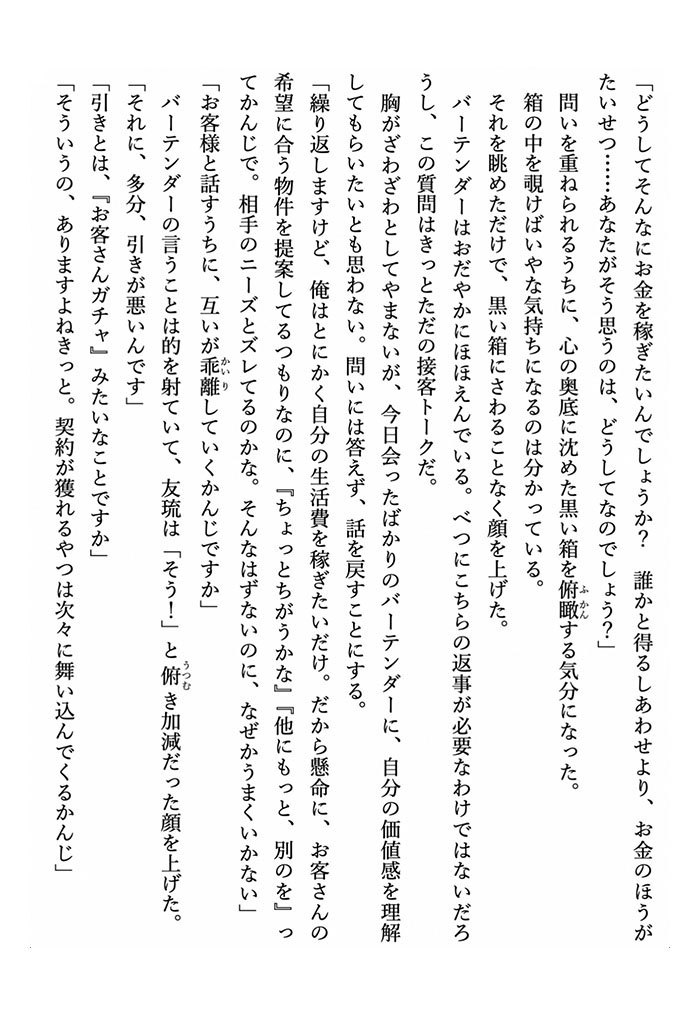 「どうしてそんなにお金を稼ぎたいんでしょうか？　誰かと得るしあわせより、お金のほうが
たいせつ……あなたがそう思うのは、どうしてなのでしょう？」
　問いを重ねられるうちに、心の奥底に沈めた黒い箱を俯瞰ふかんする気分になった。
　箱の中を覗けばいやな気持ちになるのは分かっている。
　それを眺めただけで、黒い箱にさわることなく顔を上げた。
　バーテンダーはおだやかにほほえんでいる。べつにこちらの返事が必要なわけではないだろ
うし、この質問はきっとただの接客トークだ。
　胸がざわざわとしてやまないが、今日会ったばかりのバーテンダーに、自分の価値感を理解
してもらいたいとも思わない。問いには答えず、話を戻すことにする。
「繰り返しますけど、俺はとにかく自分の生活費を稼ぎたいだけ。だから懸命に、お客さんの
希望に合う物件を提案してるつもりなのに、『ちょっとちがうかな』『他にもっと、別のを』っ
てかんじで。相手のニーズとズレてるのかな。そんなはずないのに、なぜかうまくいかない」
「お客様と話すうちに、互いが乖離かいりしていくかんじですか」
　バーテンダーの言うことは的を射ていて、友琉は「そう！」と俯うつむき加減だった顔を上げた。
「それに、多分、引きが悪いんです」
「引きとは、『お客さんガチャ』みたいなことですか」
「そういうの、ありますよねきっと。契約が獲れるやつは次々に舞い込んでくるかんじ」